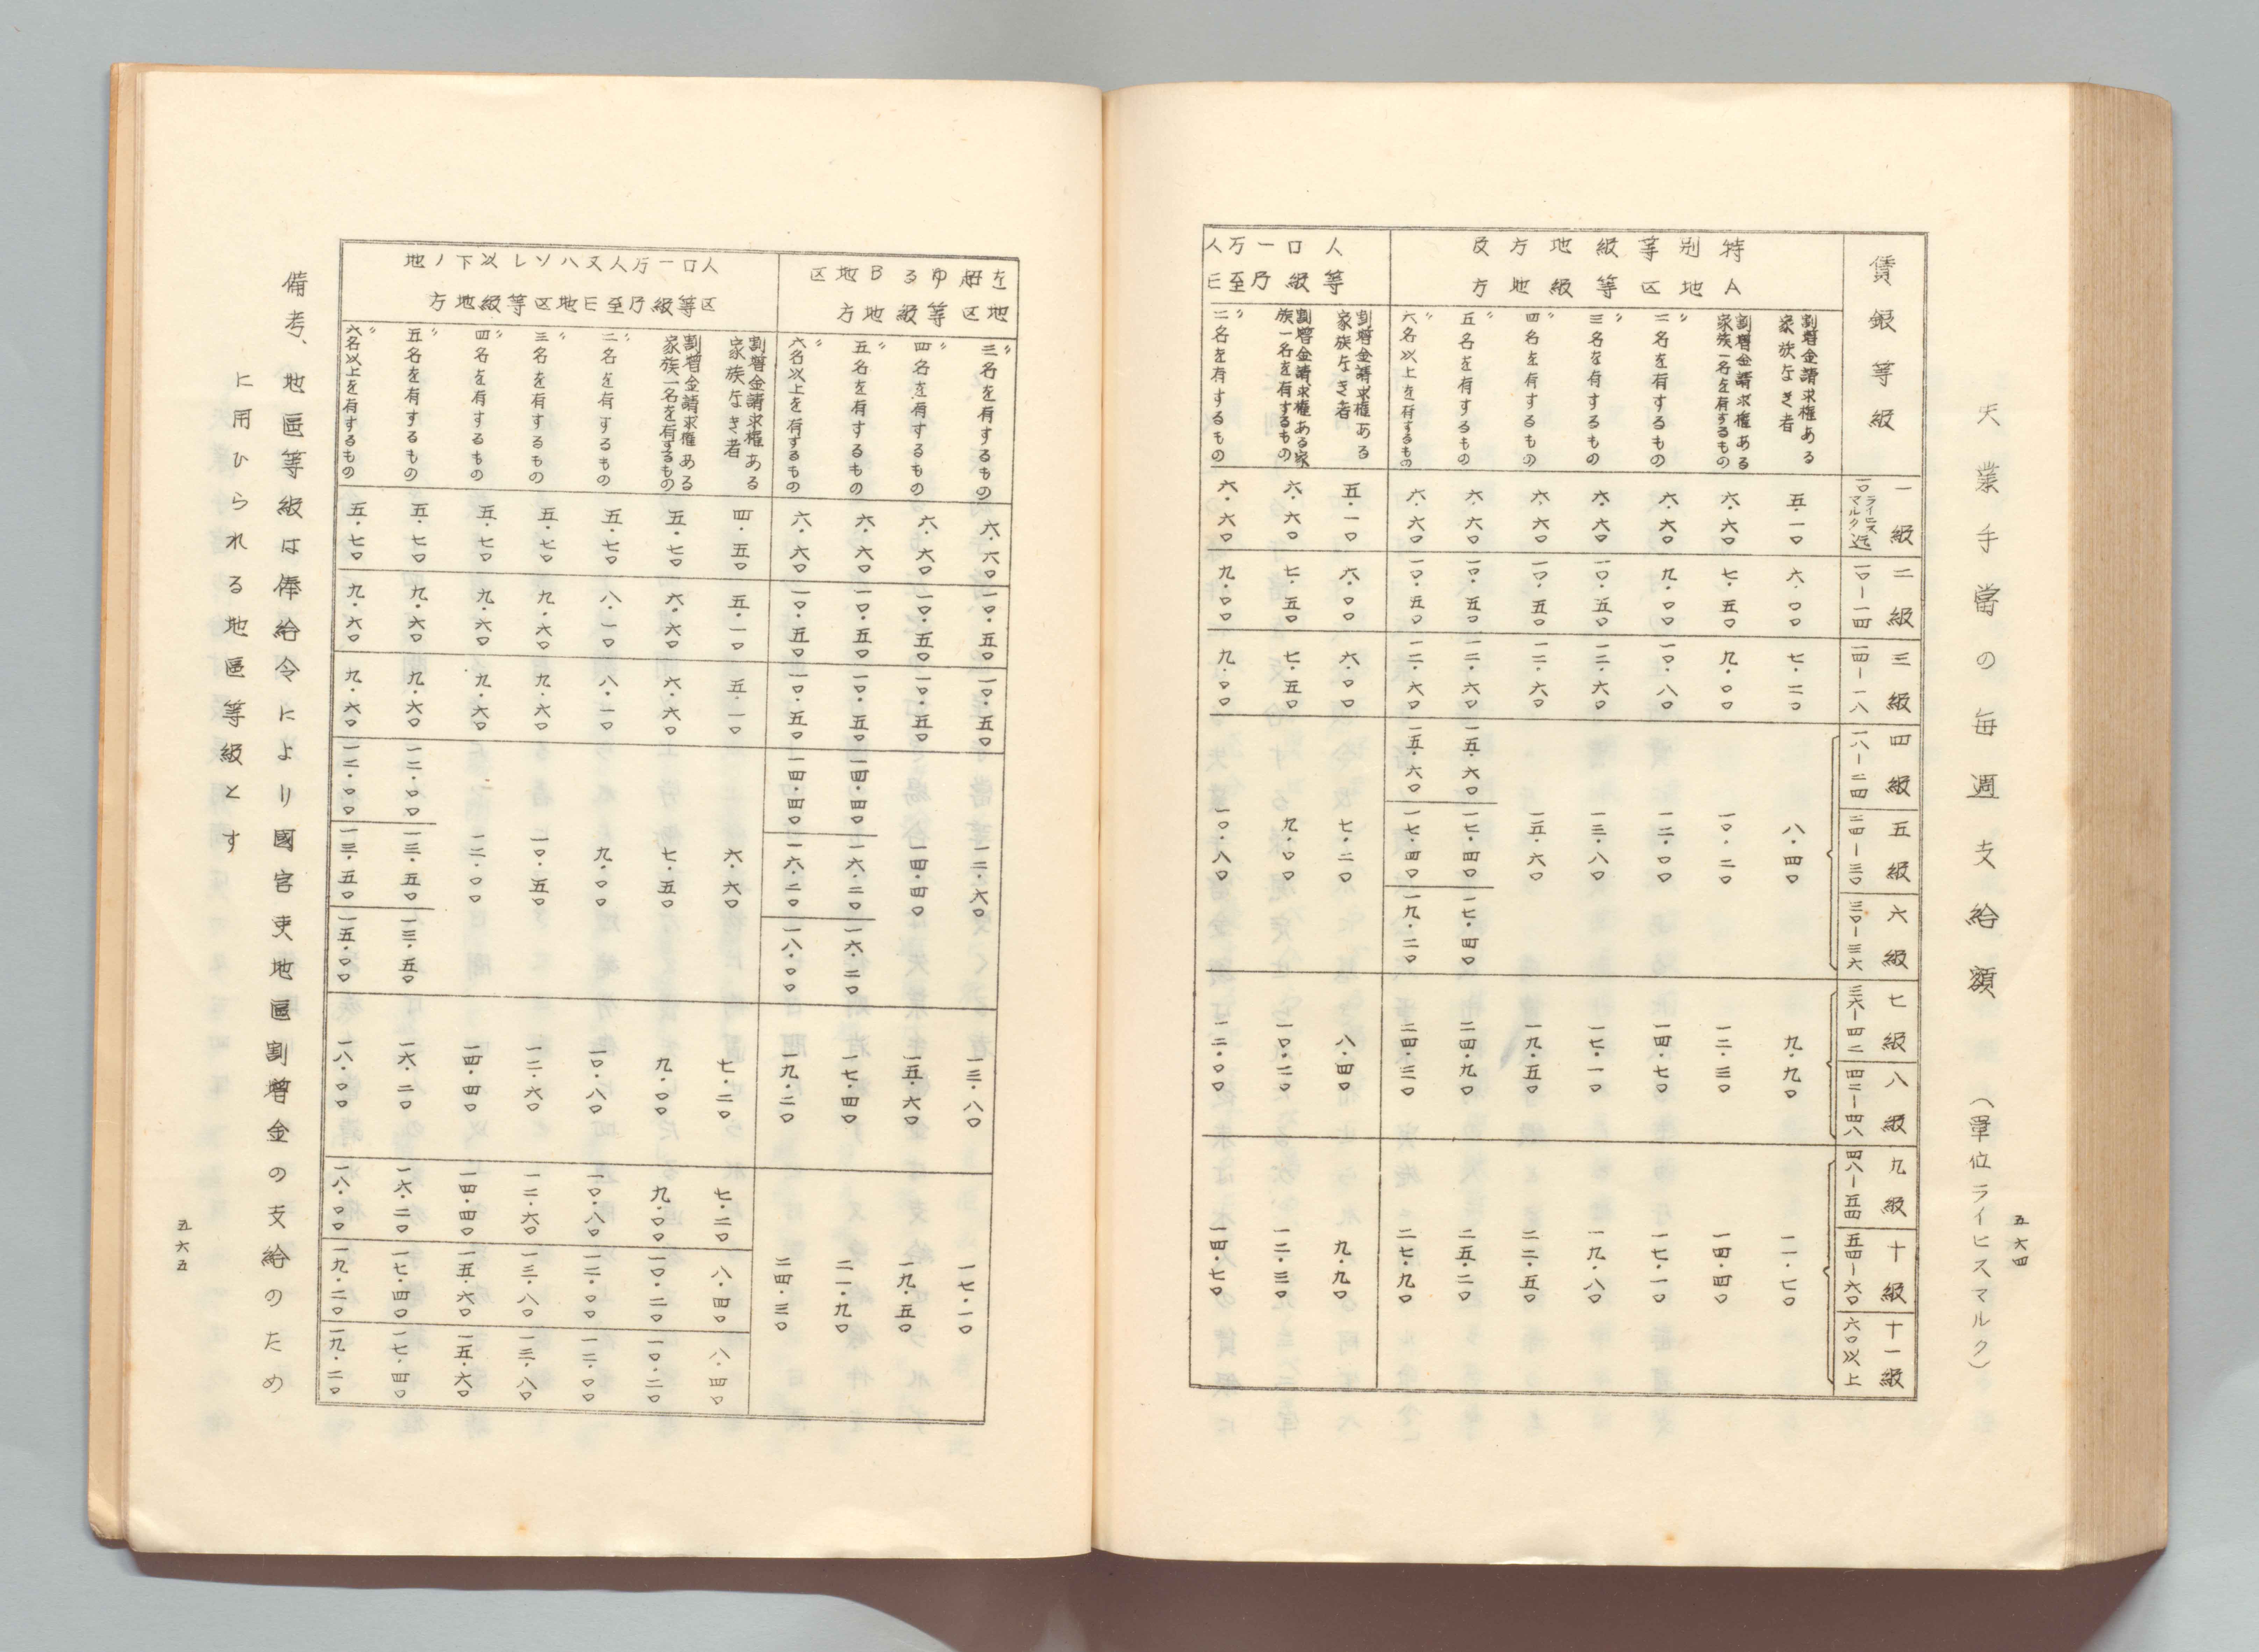 五六四
失業手當の毎週支給額 (單位ライヒスマルク)
賃銀等級
一級 一〇ライヒスマルク迄
二級 一〇—一四
三級 一四—一八
四級 一八—二四
五級 二四—三〇
六級 三〇—三六
七級 三六—四二
八級 四二—四八
九級 四八—五四
十級 五四—六〇
十一級 六〇以上
特別等級地方及
A地区等級地方
割増金請求権ある家族なき者 五・一〇 六・〇〇 七・二〇 八・四〇 九・九〇 一一・七〇
割増金請求権ある家族一名を有するもの 六・六〇 七・五〇 九・〇〇 一〇・二〇 一二・三〇 一四・四〇
〃二名を有するもの 六・六〇 九・〇〇 一〇・八〇 一二・〇〇 一四・七〇 一七・一〇
〃三名を有するもの 六・六〇 一〇・五〇 一二・六〇 一三・八〇 一七・一〇 一九・八〇
〃四名を有するもの 六・六〇 一〇・五〇 一二・六〇 一五・六〇 一九・五〇 二二・五〇
〃五名を有するもの 六・六〇 一〇・五〇 一二・六〇 一五・六〇 一七・四〇 一七・四〇 二四・九〇 二五・二〇
〃六名以上を有するもの 六・六〇 一〇・五〇 一二・六〇 一五・六〇 一七・四〇 一九・二〇 二四・三〇 二七・九〇
人口一万人
等級乃至E
割増金請求権ある家族なき者 五・一〇 六・〇〇 六・〇〇 七・二〇 八・四〇 九・九〇
割増金請求権ある家族一名を有するもの 六・六〇 七・五〇 七・五〇 九・〇〇 一〇・二〇 一二・三〇
〃二名を有するもの 六・六〇 九・〇〇 九・〇〇 一〇・八〇 一二・〇〇 一四・七〇
を超ゆるB地区
地区等級地方
〃三名を有するもの 六・六〇 一〇・五〇 一〇・五〇 一二・六〇 一三・八〇 一七・一〇
〃四名を有するもの 六・六〇 一〇・五〇 一〇・五〇 一四・四〇 一五・六〇 一九・五〇
〃五名を有するもの 六・六〇 一〇・五〇 一〇・五〇 一四・四〇 一六・二〇 一六・二〇 一七・四〇 二一・九〇
〃六名以上を有するもの 六・六〇 一〇・五〇 一〇・五〇 一四・四〇 一六・二〇 一八・〇〇 一九・二〇 二四・三〇
人口一万人又ハソレ以下ノ地
区等級乃至E地区等級地方
割増金請求権ある家族なき者 四・五〇 五・一〇 五・一〇 六・六〇 七・二〇 七・二〇 八・四〇 八・四〇
割増金請求権ある家族一名を有するもの 五・七〇 六・六〇 六・六〇 七・五〇 九・〇〇 九・〇〇 一〇・二〇 一〇・二〇
〃二名を有するもの 五・七〇 八・一〇 八・一〇 九・〇〇 一〇・八〇 一〇・八〇 一二・〇〇 一二・〇〇
〃三名を有するもの 五・七〇 九・六〇 九・六〇 一〇・五〇 一二・六〇 一二・六〇 一三・八〇 一三・八〇
〃四名を有するもの 五・七〇 九・六〇 九・六〇 一二・〇〇 一四・四〇 一四・四〇 一五・六〇 一五・六〇
〃五名を有するもの 五・七〇 九・六〇 九・六〇 一二・〇〇 一三・五〇 一三・五〇 一六・二〇 一六・二〇 一七・四〇 一七・四〇
〃六名以上を有するもの 五・七〇 九・六〇 九・六〇 一二・〇〇 一三・五〇 一五・〇〇 一八・〇〇 一八・〇〇 一九・二〇 一九・二〇
備考、地區等級は俸給令により國官吏地區割增金の支給のため
に用ひられる地區等級とす
五六五